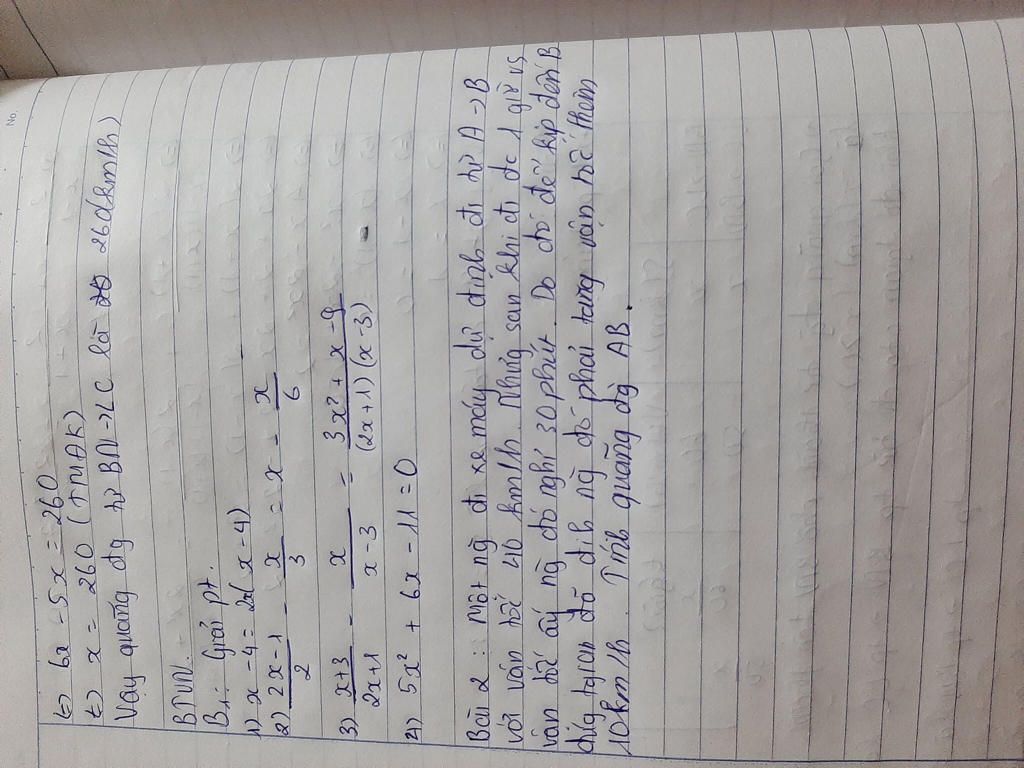 No.
<=> 6x - 5x = 260
<=> x = 260 (TMĐK)
Vậy quãng đg từ BN->LC là 260(km/h)
BTVN.
B1: Giải pt.
1) x - 4 = 2(x - 4)
2) (2x - 1)/2 - x/3 = x - x/6
3) (x+3)/(2x+1) - x/(x-3) = (3x² + x - 9)/((2x+1)(x-3))
4) 5x² + 6x - 11 = 0
Bài 2: Một ng đi xe máy dự định đi từ A -> B
với vận tốc 40 km/h. Nhưng sau khi đi đc 1 giờ vs
vận tốc ấy ng đó nghỉ 30 phút. Do đó để kịp đến B
đúng tgian đã đih ng đó phải tăng vận tốc thêm
10km/h. Tính quãng đg AB.